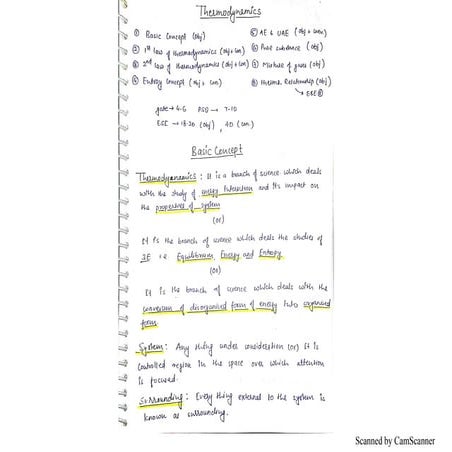 Thermodynamics
① Basic Concept (Obj)
② 1st law of thermodynamics (Obj + Con)
③ 2nd law of thermodynamics (Obj + Con)
④ Entropy Concept (Obj + Con)
⑤ AE & UAE (Obj + Conv)
⑥ Pure substance (Obj)
⑦ Mixture of gases (Obj)
⑧ Thermo. Relationship (Obj)
→ ESE
gate → 4-6 PSU → 7-10
ESE → 18-20 (Obj), 40 (Con)
Basic Concept
Thermodynamics : It is a branch of science which deals
with the study of energy Interaction and its impact on
the properties of system
(or)
It is the branch of science which deals the studies of
3E i.e Equilibrium, Energy and Entropy
(or)
It is the branch of science which deals with the
conversion of disorganised form of energy into organised
form
System : Any thing under consideration (or) It is
controlled region in the space over which attention
is focused.
Surrounding : Every thing external to the system is
known as surrounding.
Scanned by CamScanner